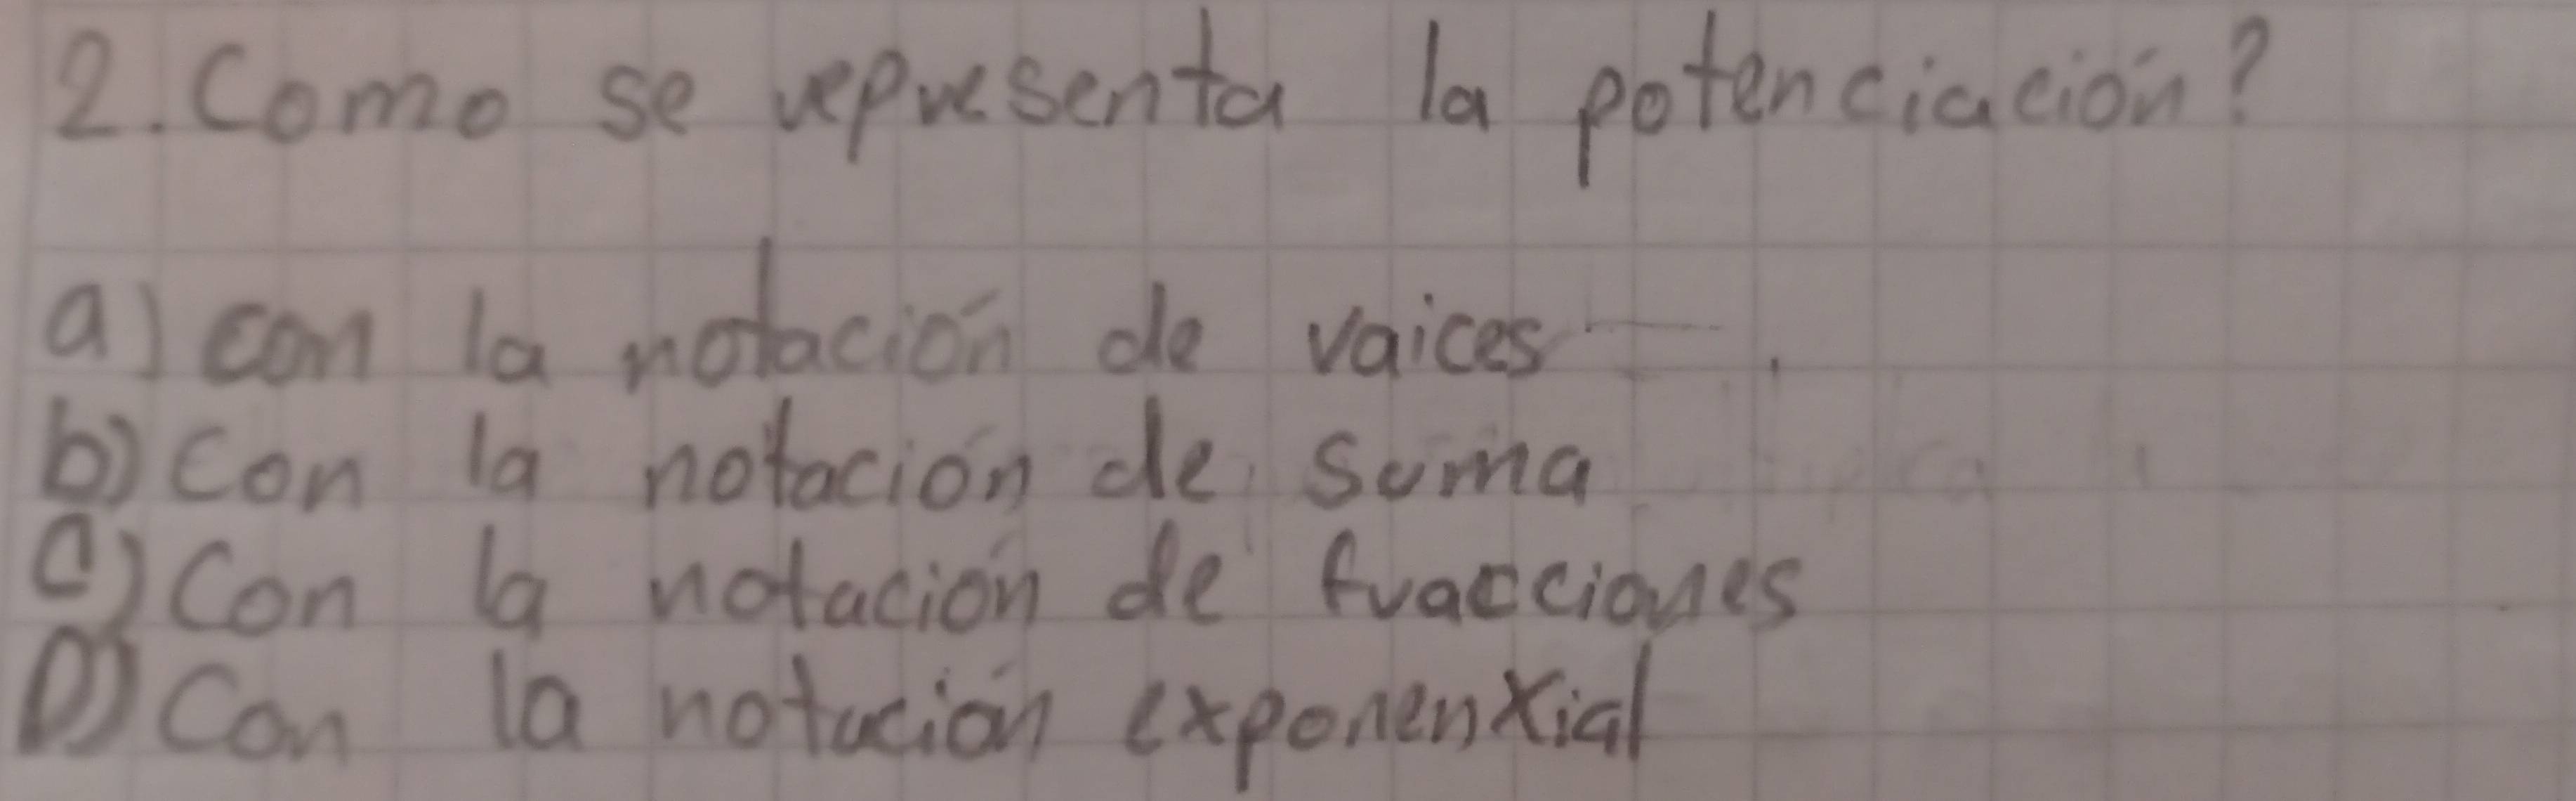 2. Como se representa la potenciación?
a) con la notación de raices
b) Con la notación de suma
C) Con la notación de fracciones
D) Con la notación exponenxial